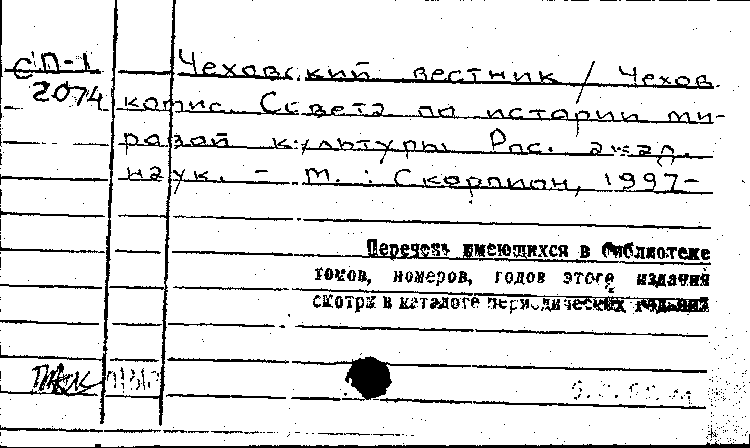 СП-1
2074
Чеховский вестник / Чехов.
комис. Совета по истории ми-
ровой культуры Рос. акад.
наук. - М. : Скорпион, 1997-
Перечень имеющихся в библиотеке
томов, номеров, годов этого издания
смотри в каталоге периодических изданий